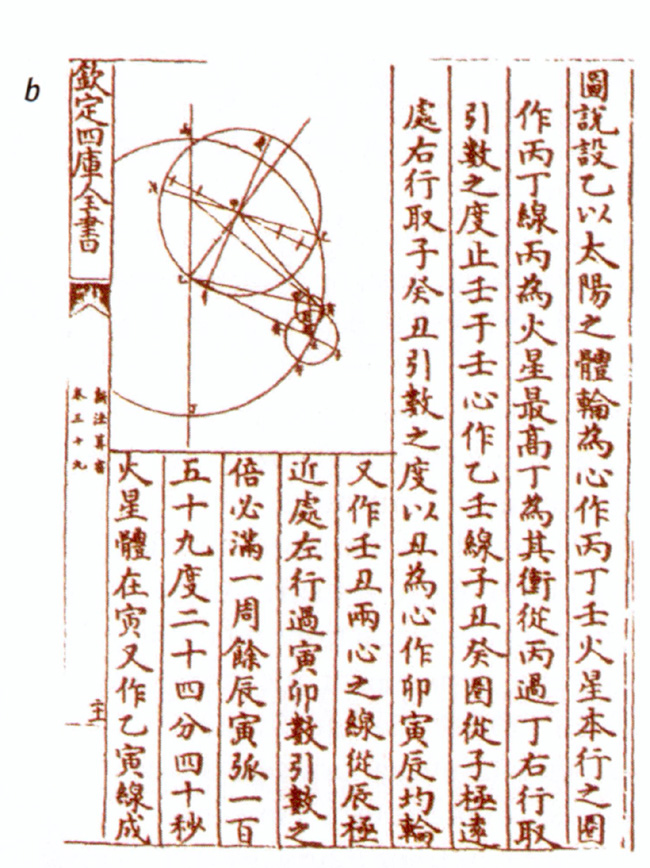 b
圖說設乙以太陽之體輪為心作丙丁壬火星本行之圈
作丙丁線丙為火星最高丁為其衝從丙過丁右行取
引數之度止壬于壬心作乙壬線子丑癸圈從子極遠
處右行取子癸丑引數之度以丑為心作卯寅辰均輪
又作壬丑兩心之線從辰極
近處左行過寅卯數引數之
倍必滿一周餘辰寅弧一百
五十九度二十四分四十秒
火星體在寅又作乙寅線成
欽定四庫全書
新法算書
卷三十九